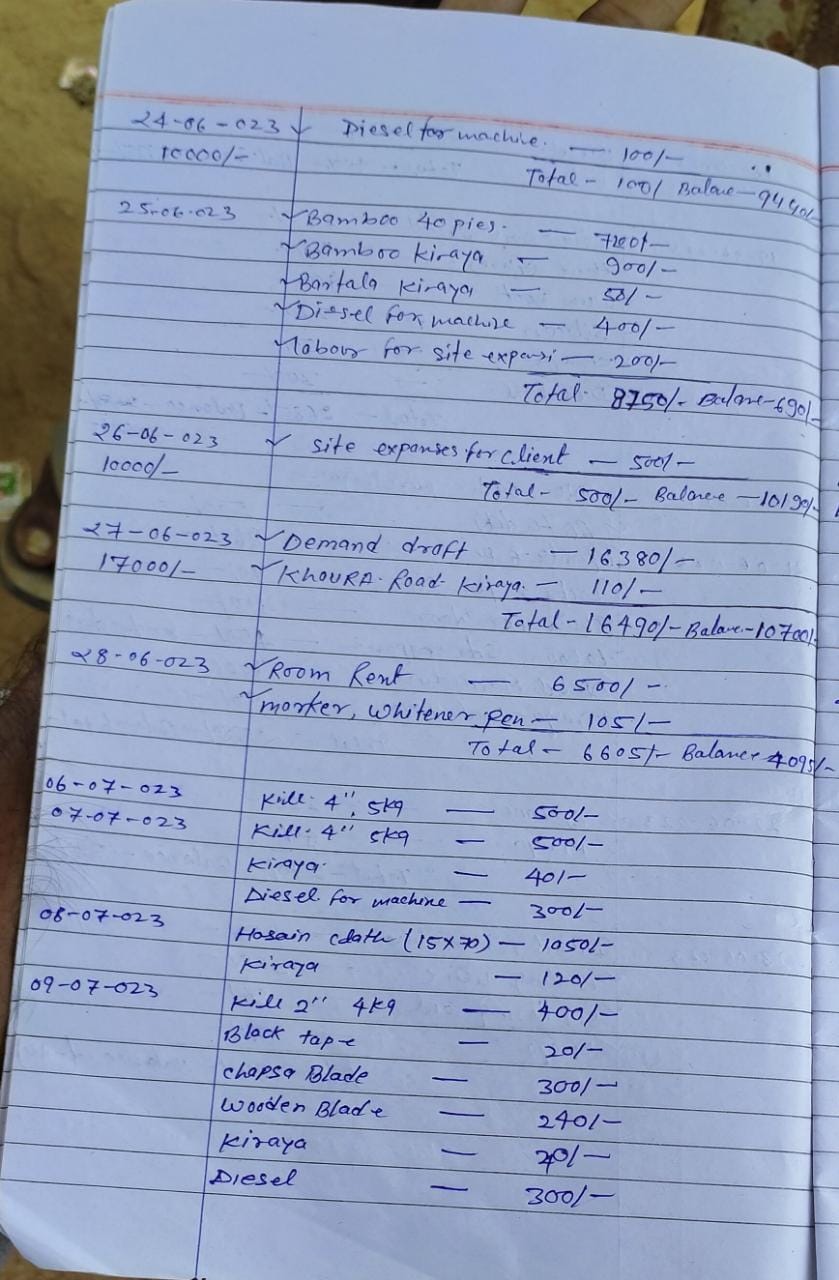 24-06-023 Diesel for machine. — 100/-
10000/- Total - 100/ Balance - 9440/-
25-06-023 Bamboo 40 pies. — 7200/-
Bamboo kiraya — 900/-
Bartala kiraya — 50/-
Diesel for machine — 400/-
labour for site expansi — 200/-
Total - 8750/- Balance - 690/-
26-06-023 site expanses for client — 500/-
10000/- Total - 500/- Balance — 10190/-
27-06-023 Demand draft — 16380/-
17000/- KHOURA Road kiraya. — 110/-
Total - 16490/- Balance - 10700/-
28-06-023 Room Rent — 6500/-
marker, whitener, pen — 105/-
Total - 6605/- Balance - 4095/-
06-07-023 Kill 4", 5kg — 500/-
07-07-023 Kill 4" 5kg — 500/-
kiraya — 40/-
Diesel for machine — 300/-
08-07-023 Hosain cloath (15x70) — 1050/-
kiraya — 120/-
09-07-023 Kill 2" 4kg — 400/-
Black tape — 20/-
chapsa Blade — 300/-
wooden Blade — 240/-
kiraya — 20/-
Diesel — 300/-